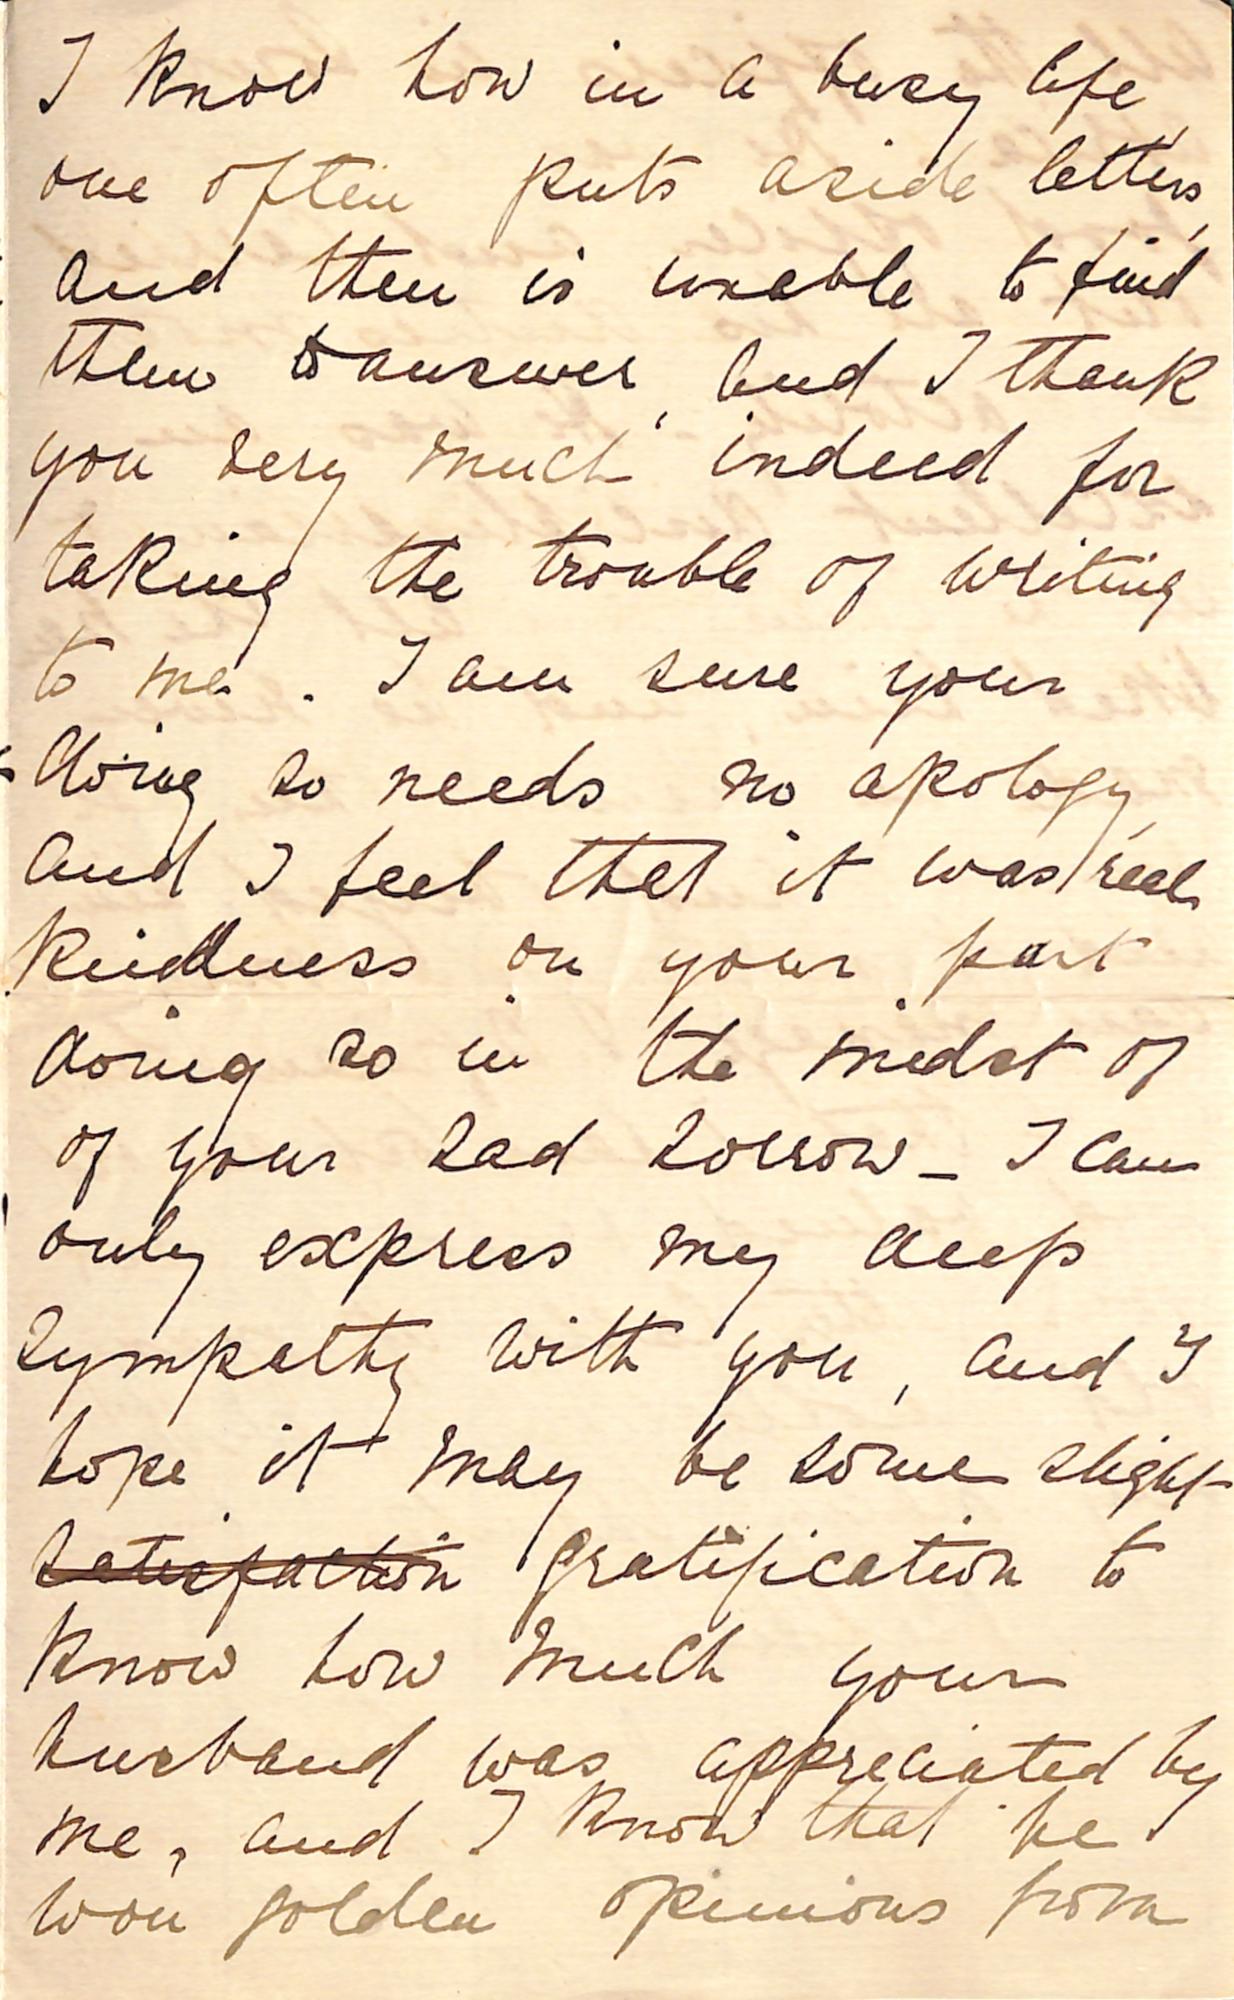 I know how in a busy life,
one often puts aside letters,
and then is unable to find
them to answer, and I thank
you very much indeed for
taking the trouble of writing
to me. I am sure your
doing so needs no apology,
and I feel that it was real
kindness on your part
doing so in the midst of
of your sad sorrow – I can
only express my deep
sympathy with you, and I
hope it may be some slight
satisfaction gratification to
know how much your
husband was appreciated by
me, and I know that he
won golden opinions from